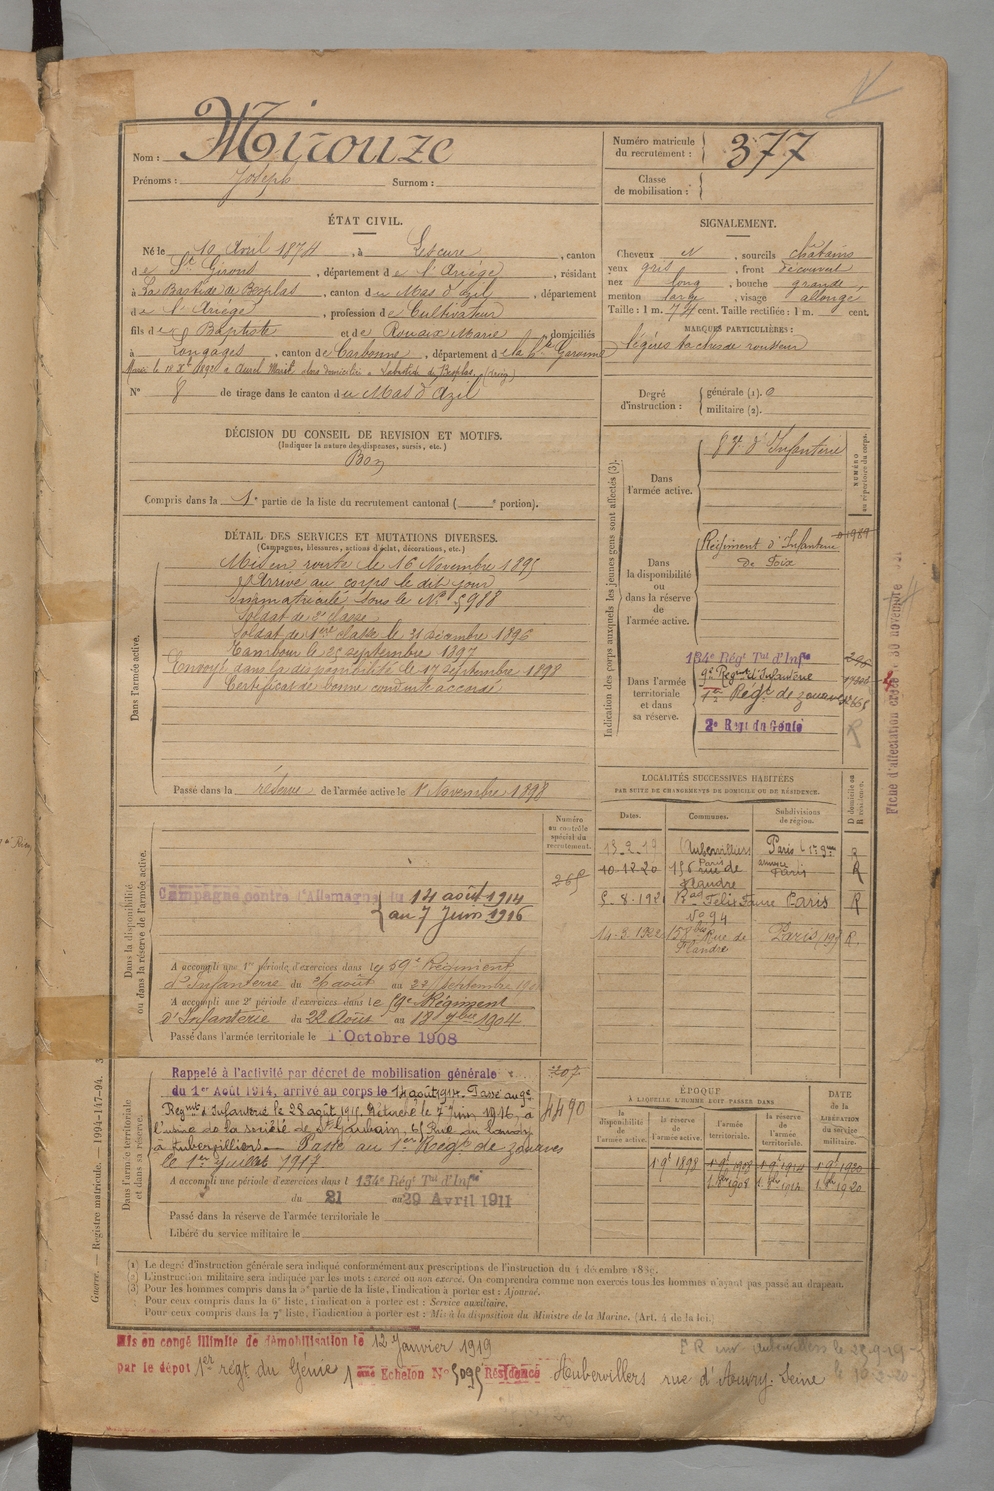 Nom : Mirouze
Prénoms : Joseph Surnom :
Numéro matricule du recrutement : 377
Classe de mobilisation :
ÉTAT CIVIL.
Né le 10 Avril 1874, à Lescure, canton
de St Girons, département de l'Ariège, résidant
à La Bastide de Besplas, canton du Mas d'azil, département
de l'Ariège, profession de Cultivateur
fils de Baptiste et de Rouaix Marie, domiciliés
à Longages, canton de Carbonne, département de la hte Garonne
N° 8 de tirage dans le canton du Mas d'Azil
SIGNALEMENT.
Cheveux N, sourcils châtains
yeux gris, front découvert
nez long, bouche grande,
menton large, visage allongé
Taille : 1 m. 74 cent. Taille rectifiée : 1 m. cent.
MARQUES PARTICULIÈRES :
légères taches de rousseur
Degré d'instruction : générale (1).
militaire (2).
DÉCISION DU CONSEIL DE REVISION ET MOTIFS.
(Indiquer la nature des dispenses, sursis, etc.)
Bon
Compris dans la 1e partie de la liste du recrutement cantonal ( e portion).
DÉTAIL DES SERVICES ET MUTATIONS DIVERSES.
(Campagnes, blessures, actions d'éclat, décorations, etc.)
Dans l'armée active.
Mis en route le 16 Novembre 1895
Arrivé au corps le dit jour
Immatriculé sous le No 5988
Soldat de 2e classe
Soldat de 1ere classe le 31 décembre 1896
Tambour le 25 septembre 1897
Envoyé dans la disponibilité le 17 septembre 1898
Certificat de bonne conduite accordé
Passé dans la réserve de l'armée active le 1er Novembre 1898
Indication des corps auxquels les jeunes gens sont affectés (3).
NUMÉRO au répertoire du corps.
Dans l'armée active.
d'Infanterie
Dans la disponibilité ou dans la réserve de l'armée active.
Régiment d'Infanterie
de Foix
1989
Dans l'armée territoriale et dans sa réserve.
134e Régt Tal d'Infie
9e Regmt d'Infanterie
1er Régt de zouaves
2e Regt du Génie
R
Fiche d'affectation créée le 30 novembre
LOCALITÉS SUCCESSIVES HABITÉES
PAR SUITE DE CHANGEMENTS DE DOMICILE OU DE RÉSIDENCE.
Dates. Communes. Subdivisions de région. D domicile ou R résidence.
Aubervilliers Paris R
10-12-20 156 rue de Flandre Paris R
Bd Félix Faure No 94 Paris R
14-3-1922 158 bis Rue de Flandre Paris R.
Numéro au contrôle spécial du recrutement.
265
Dans la disponibilité ou dans la réserve de l'armée active.
Campagne contre l'Allemagne du 14 août 1914
au 7 Juin 1916
A accompli une 1re période d'exercices dans le 59e Régiment
d'Infanterie du 26 août au 22 Septembre
A accompli une 2e période d'exercices dans le 59e Régiment
d'Infanterie du 22 Août au 18 7bre 1904
Passé dans l'armée territoriale le 1 Octobre 1908
Dans l'armée territoriale et dans sa réserve.
Rappelé à l'activité par décret de mobilisation générale
du 1er Août 1914, arrivé au corps le 14 août 1914. Passé au 9e
Regmt d'Infanterie le 28 août 1915. Détaché le 7 Juin 1916, à
l'usine de la société de St Gobain, 61 Rue du Landy
à Aubervilliers. Passé au 1er Régt de zouaves
le 1er Juillet 1917.
4490
A accompli une période d'exercices dans l 134e Régt Tal d'Infie
du 21 au 29 Avril 1911
Passé dans la réserve de l'armée territoriale le
Libéré du service militaire le
ÉPOQUE
A LAQUELLE L'HOMME DOIT PASSER DANS
la disponibilité de l'armée active. la réserve de l'armée active. l'armée territoriale. la réserve de l'armée territoriale. DATE de la LIBÉRATION du service militaire.
1 9e 1898 1 9e 1908 1 9e 1914 1 9e 1920
1. 8bre 1908 1. 8bre 1914 1. 8bre 1920
(1) Le degré d'instruction générale sera indiqué conformément aux prescriptions de l'instruction du 4 décembre 1889.
(2) L'instruction militaire sera indiquée par les mots : exercé ou non exercé. On comprendra comme non exercés tous les hommes n'ayant pas passé au drapeau.
(3) Pour les hommes compris dans la 5e partie de la liste, l'indication à porter est : Ajourné.
Pour ceux compris dans la 6e liste, l'indication à porter est : Service auxiliaire.
Pour ceux compris dans la 7e liste, l'indication à porter est : Mis à la disposition du Ministre de la Marine. (Art. 4 de la loi.)
Guerre. — Registre matricule. — 1994-147-94. 3
Mis en congé illimité de démobilisation le 12 Janvier 1919
par le dépôt 1er régt du Génie 1 eme Echelon N° 5095 Résidence Aubervillers rue d'Auvry. Seine